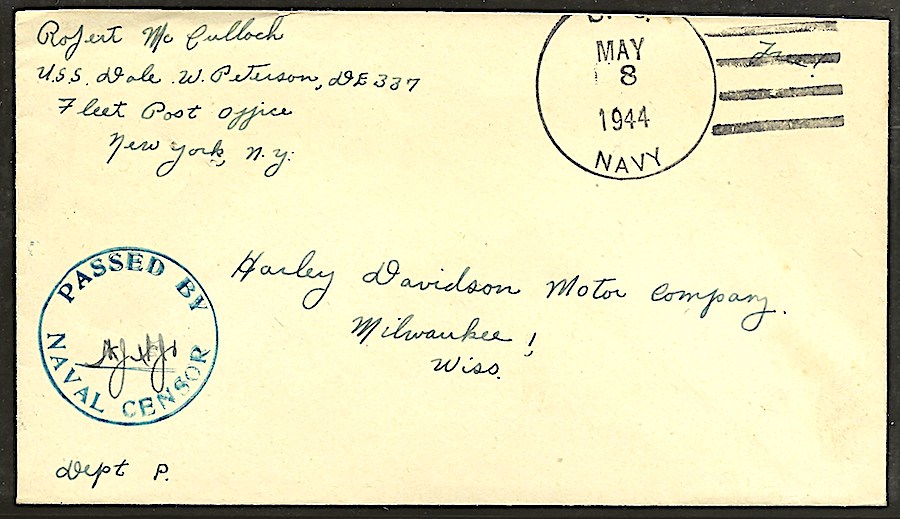 Robert Mc Culloch
U.S.S. Dale W. Peterson, DE 337
Fleet Post Office
New York, N.Y.
MAY
8
1944
NAVY
Free
PASSED BY
NAVAL CENSOR
Harley Davidson Motor Company.
Milwaukee 1
Wiss.
Dept P.